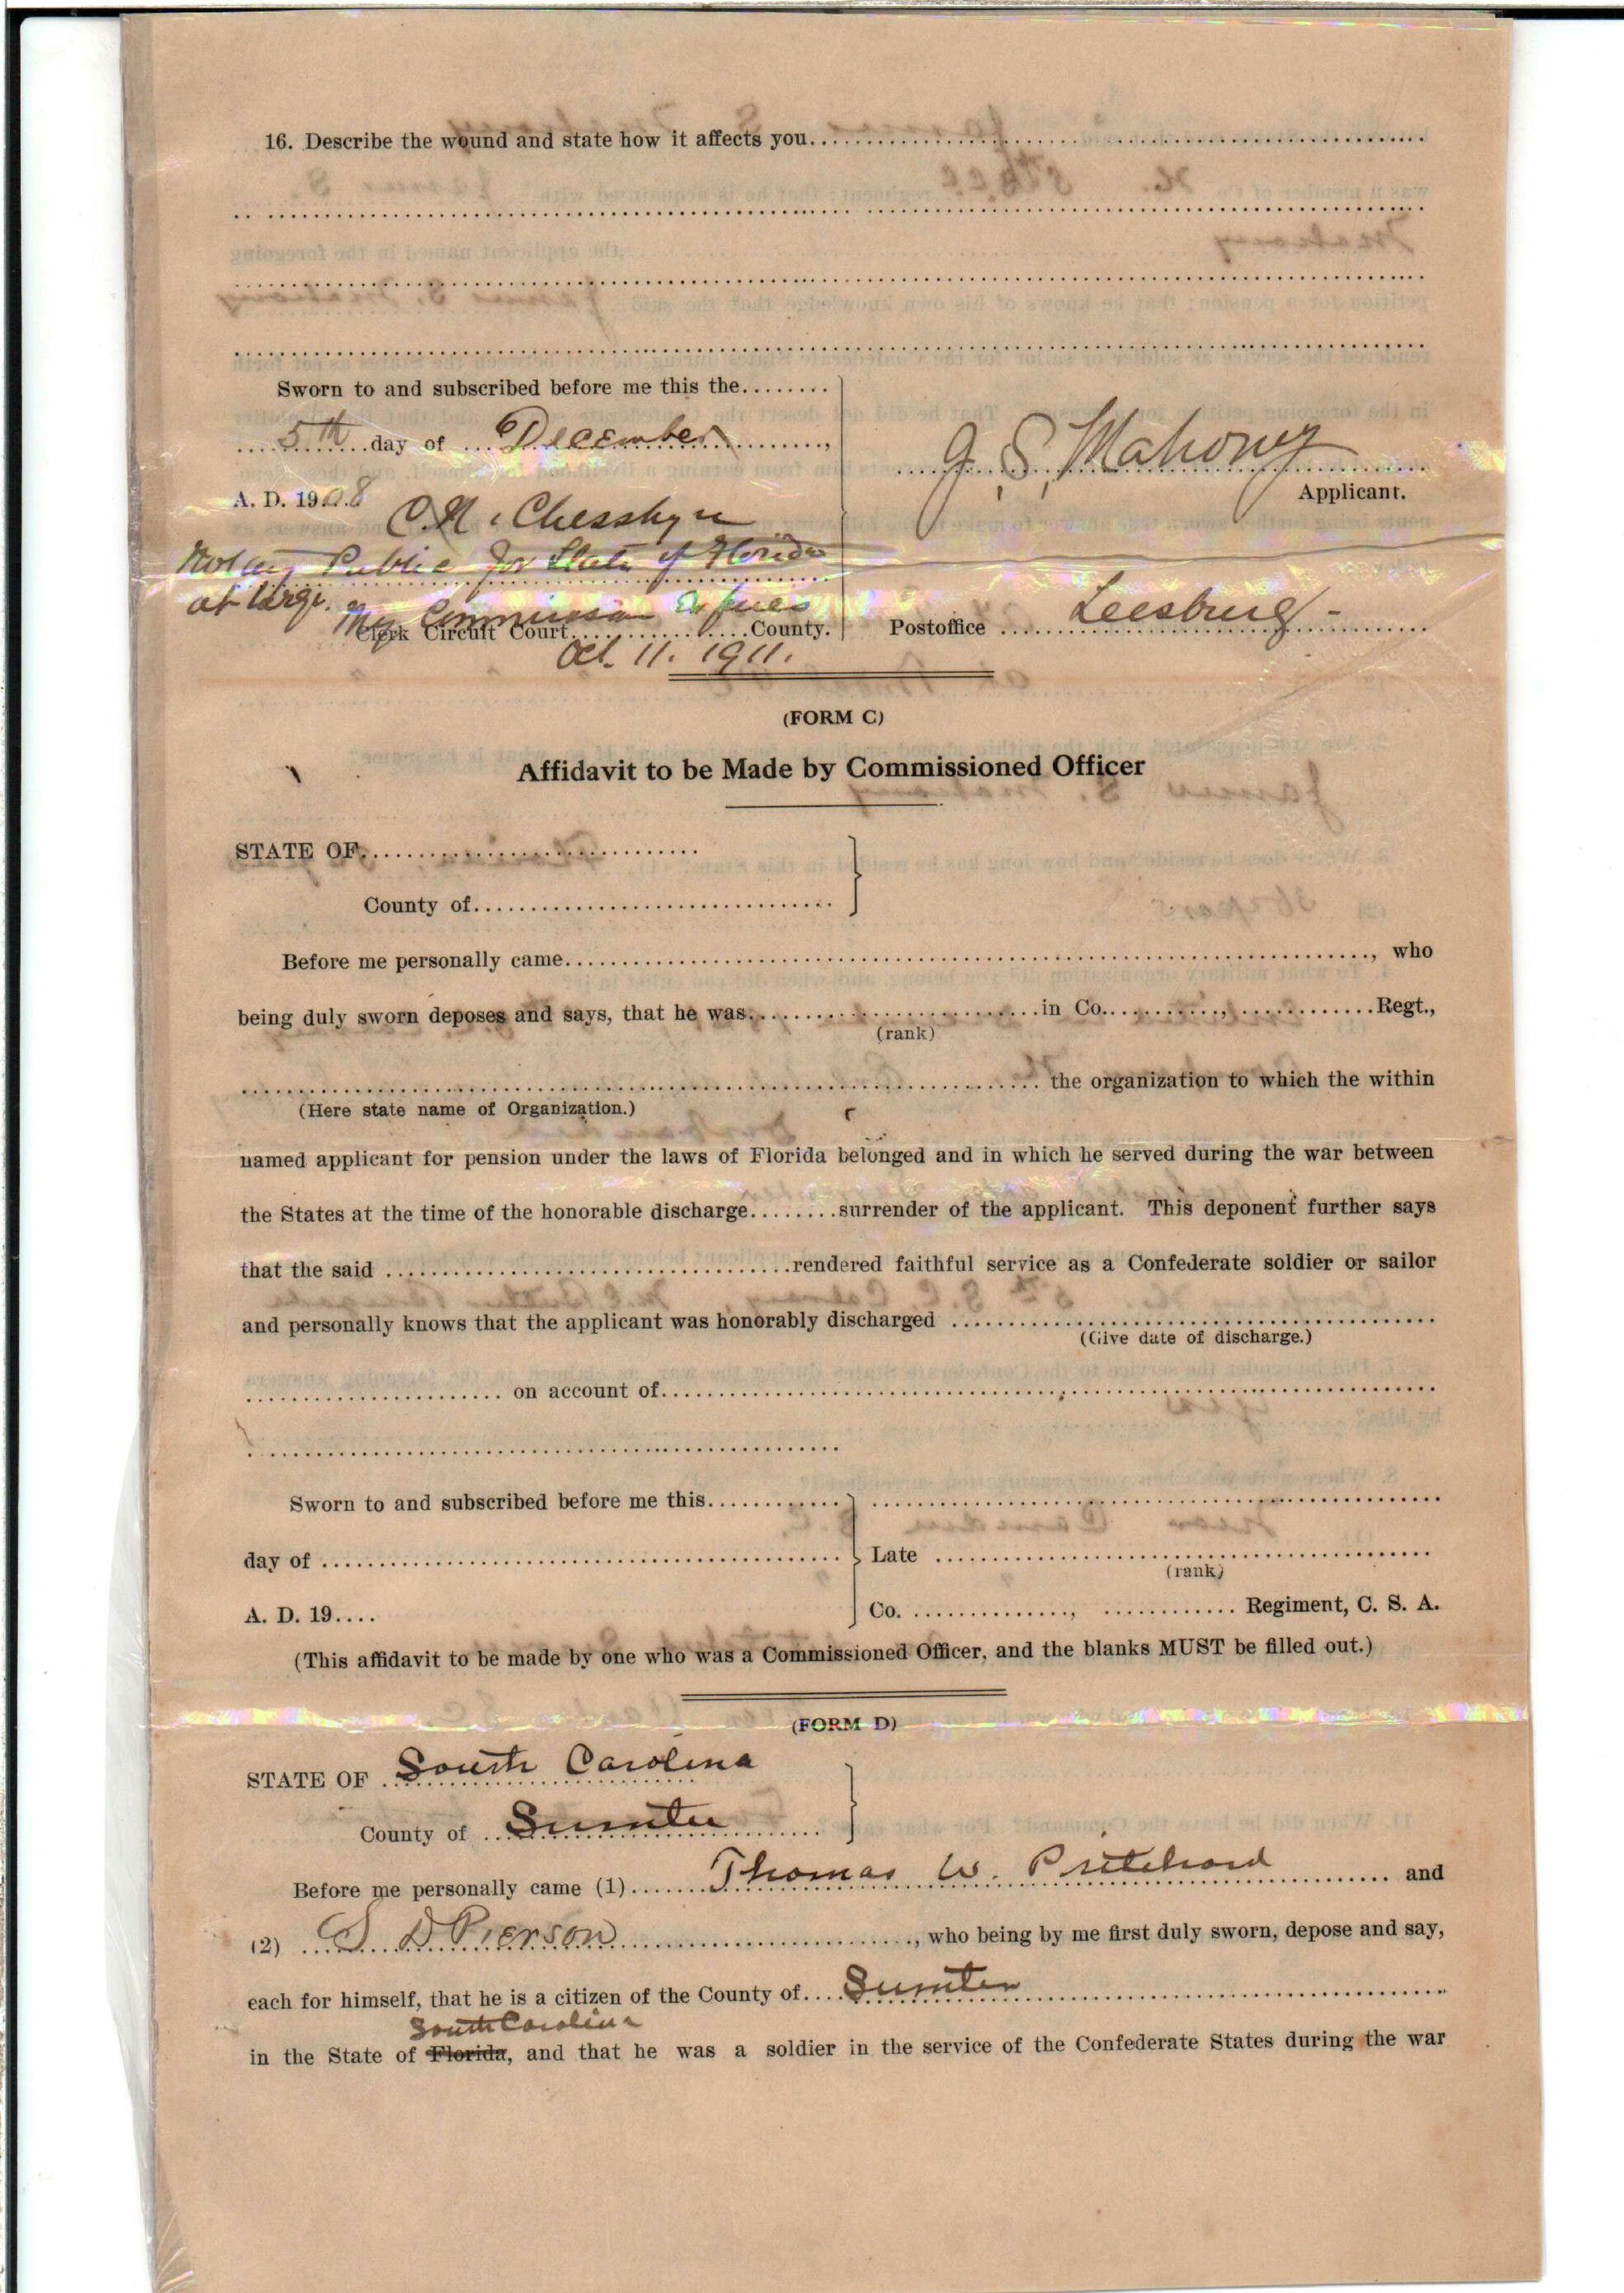 16. Describe the wound and state how it affects you
Sworn to and subscribed before me this the
5th day of December,
A. D. 1908
J. S. Mahony
Applicant.
Notary Public for State of Florida
at large. My Commission Expires
Clerk Circuit Court County.
Oct. 11. 1911.
Postoffice Leesburg -
(FORM C)
Affidavit to be Made by Commissioned Officer
STATE OF
County of
Before me personally came, who
being duly sworn deposes and says, that he was in Co. , Regt.,
(rank)
the organization to which the within
(Here state name of Organization.)
named applicant for pension under the laws of Florida belonged and in which he served during the war between
the States at the time of the honorable discharge surrender of the applicant. This deponent further says
that the said rendered faithful service as a Confederate soldier or sailor
and personally knows that the applicant was honorably discharged
(Give date of discharge.)
on account of
Sworn to and subscribed before me this
day of
Late
(rank)
A. D. 19
Co. , Regiment, C. S. A.
(This affidavit to be made by one who was a Commissioned Officer, and the blanks MUST be filled out.)
(FORM D)
STATE OF South Carolina
County of Sumter
Before me personally came (1) Thomas W. Pritchard and
(2) S D Pierson, who being by me first duly sworn, depose and say,
each for himself, that he is a citizen of the County of Sumter
South Carolina
in the State of Florida, and that he was a soldier in the service of the Confederate States during the war